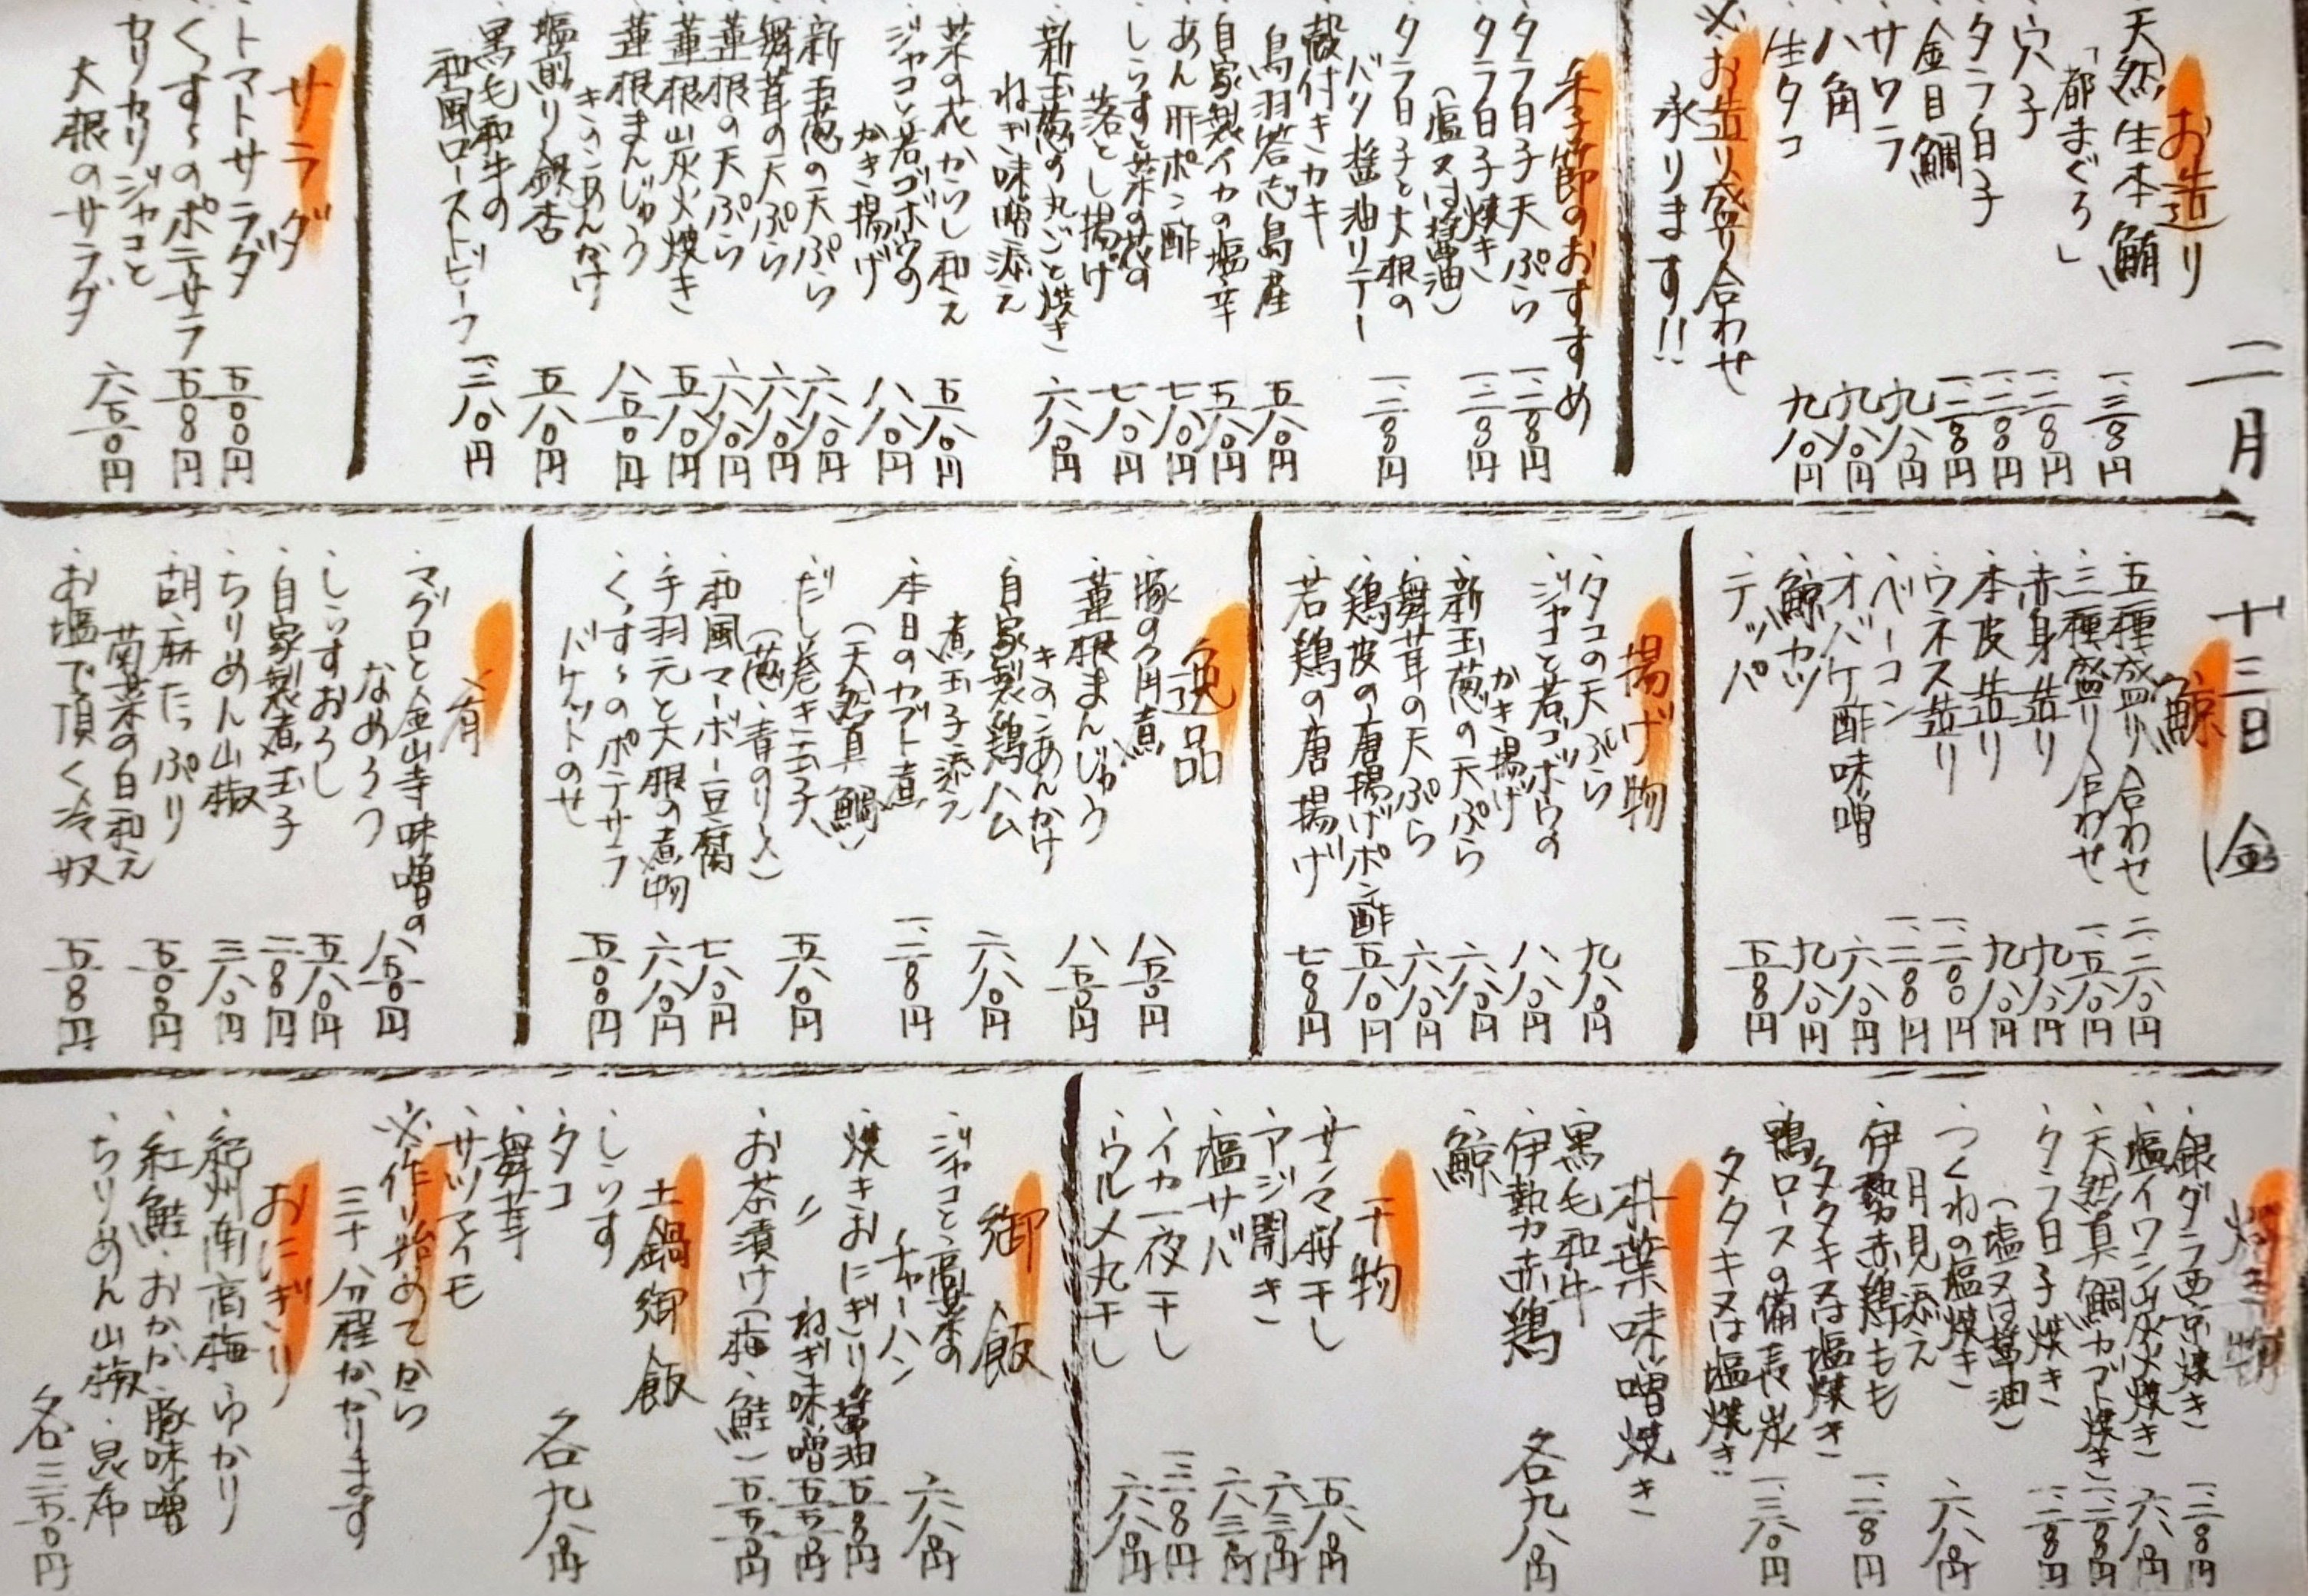 二月 十三日 金
お造り
・天然生本鮪
「都まぐろ」
・穴子
・タラ白子
・金目鯛
・サワラ
・八角
・生タコ
九八〇円
九八〇円
九八〇円
※お造り盛り合わせ
承ります!!
季節のおすすめ
・タラ白子天ぷら
・タラ白子焼き
(塩又は醤油)
・タラ白子と大根の
バタ醤油ソテー
・殻付きカキ
鳥羽答志島産
五八〇円
・自家製イカの塩辛
・あん肝ポン酢
・しらすと菜の花の
落とし揚げ
七八〇円
・新玉葱の丸ごと焼き
ねぎ味噌添え
六八〇円
・菜の花からし和え
五八〇円
・ジャコと若ゴボウの
かき揚げ
八八〇円
・新玉葱の天ぷら
六八〇円
・舞茸の天ぷら
六八〇円
・蓮根の天ぷら
六八〇円
・蓮根炭火焼き
五八〇円
・蓮根まんじゅう
きのこあんかけ
八五〇円
・塩煎り銀杏
五八〇円
・黒毛和牛の
和風ローストビーフ
サラダ
・トマトサラダ
五〇〇円
・くっすのポテサラ
・カリカリジャコと
大根のサラダ
六五〇円
鯨
・五種盛り合わせ
・三種盛り合わせ
・赤身造り
九八〇円
・本皮造り
九八〇円
・ウネス造り
・ベーコン
・オバケ酢味噌
六八〇円
・鯨カツ
九八〇円
・テッパ
揚げ物
・タコの天ぷら
九八〇円
・ジャコと若ゴボウの
かき揚げ
八八〇円
・新玉葱の天ぷら
六八〇円
・舞茸の天ぷら
六八〇円
・鶏皮の唐揚げポン酢
五八〇円
・若鶏の唐揚げ
逸品
・豚の角煮
八五〇円
・蓮根まんじゅう
きのこあんかけ
八五〇円
・自家製鶏ハム
煮玉子添え
六八〇円
・本日のカブト煮
(天然真鯛)
・だし巻き玉子
(葱・青のり)
五八〇円
・和風マーボー豆腐
七八〇円
・手羽元と大根の煮物
六八〇円
・くっすのポテサラ
バケットのせ
肴
・マグロと金山寺味噌の
なめろう
八五〇円
・しらすおろし
五八〇円
・自家製煮玉子
・ちりめん山椒
三八〇円
・胡麻たっぷり
菊菜の白和え
・お塩で頂く冷奴
焼き物
・銀ダラ西京焼き
・塩イワシ炭火焼き
六八〇円
・天然真鯛カブト焼き
・タラ白子焼き
(塩又は醤油)
・つくねの塩焼き
月見添え
六八〇円
・伊勢赤鶏もも
タタキ又は塩焼き
・鴨ロースの備長炭
タタキ又は塩焼き
朴葉味噌焼き
・黒毛和牛
・伊勢赤鶏
・鯨
各九八〇円
干物
・サンマ桜干し
五八〇円
・アジ開き
・塩サバ
・イカ一夜干し
・ウルメ丸干し
六八〇円
御飯
・ジャコと高菜の
チャーハン
六八〇円
・焼きおにぎり醤油
〃 ねぎ味噌
・お茶漬け(梅・鮭)
土鍋御飯
・しらす
・タコ
・舞茸
・サツマイモ
各九八〇円
※作り始めてから
三十分程かかります
おにぎり
・紀州南高梅・ゆかり
・紅鮭・おかか・豚味噌
・ちりめん山椒・昆布